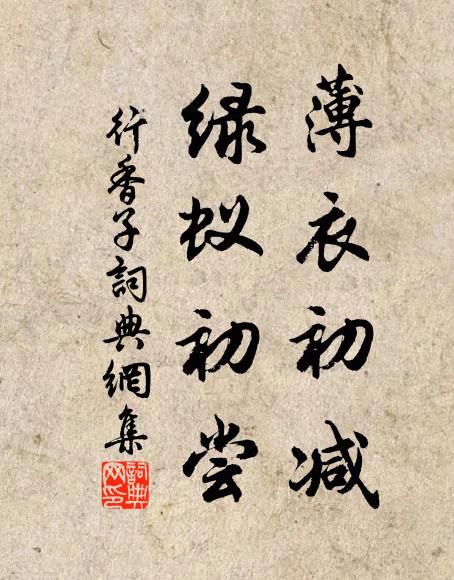 薄衣初减
绿蚁初尝
行香子詞典網集
詞典
网印